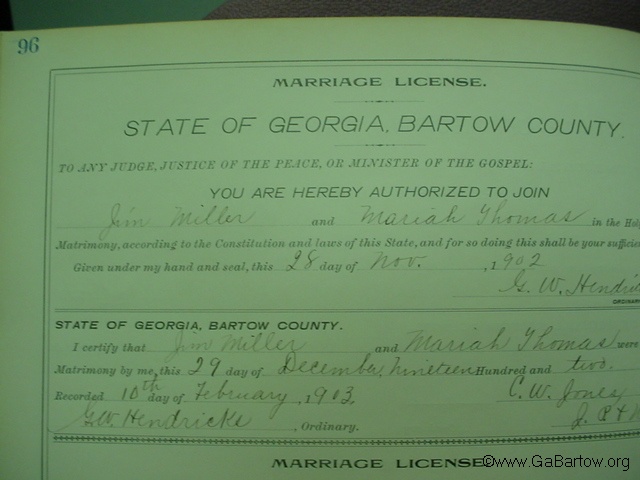 96
MARRIAGE LICENSE.
STATE OF GEORGIA, BARTOW COUNTY.
TO ANY JUDGE, JUSTICE OF THE PEACE, OR MINISTER OF THE GOSPEL:
YOU ARE HEREBY AUTHORIZED TO JOIN
Jim Miller and Mariah Thomas in the Hol
Matrimony, according to the Constitution and laws of this State, and for so doing this shall be your sufficie
Given under my hand and seal, this 28 day of Nov. , 1902
G. W. Hendric
ORDINAR
STATE OF GEORGIA, BARTOW COUNTY.
I certify that Jim Miller and Mariah Thomas were
Matrimony by me, this 29 day of December, nineteen Hundred and two.
Recorded 10th day of February , 1903. C. W. Jones
G.W. Hendricks , Ordinary. J. P.
MARRIAGE LICENSE
©www.GaBartow.org